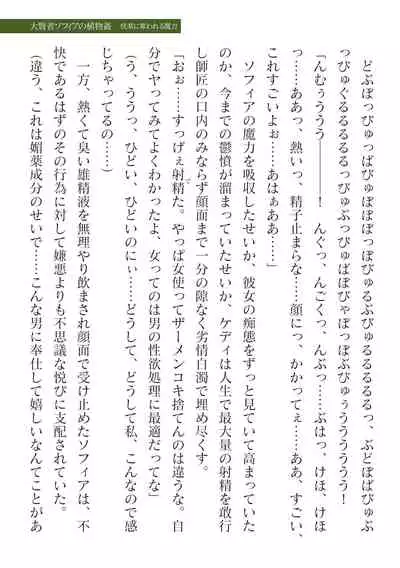 大賢者ソフィアの植物姦　快楽に奪われる魔力
どぷぽっぴゅっぱびゅぽぽぽっぽびゅるぶびゅるるるるっ、ぶどぽばびゅぶ
っびゅぐるるるるっびゅぶっびゅばぽびゃぽっぽぶびゅぅううううう！
「んむぅううう――――！　んぐっ、んごくっ、んぷっ……ぶはっ、けほ、けほ
っ……ああっ、熱いっ、精子止まらな……顔にっ、かかってぇ……ああ、すごい、
これすごいよぉ……あはぁああ……」
ソフィアの魔力を吸収したせいか、彼女の痴態をずっと見ていて高まっていた
のか、今までの鬱憤が溜まっていたせいか、ケディは人生で最大量の射精を敢行
し師匠の口内のみならず顔面まで一分の隙なく劣情白濁で埋め尽くす。
「おぉ……すっげぇ射精た。やっぱ女使ってザーメンコキ捨てんのは違うな。自
分でヤってみてよくわかったよ、女ってのは男の性欲処理に最適だってな」
（う、ううっ、ひどい、ひどいのにぃ……どうして、どうして私、こんなので感
じちゃってるの……）
一方、熱くて臭い雄精液を無理やり飲まされ顔面で受け止めたソフィアは、不
快であるはずのその行為に対して嫌悪よりも不思議な悦びに支配されていた。
（違う、これは媚薬成分のせいで……こんな男に奉仕して嬉しいなんてことがあ